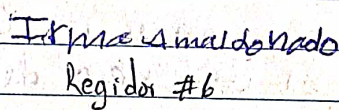 Irma A maldonado
Regidor #6